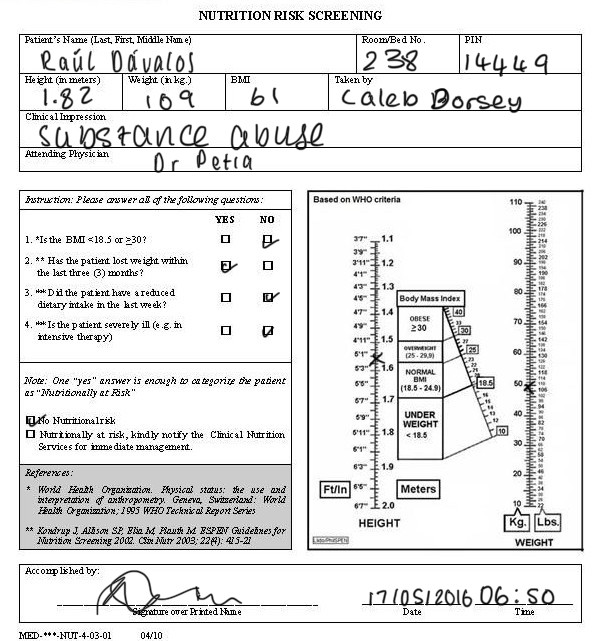 NUTRITION RISK SCREENING
Patient's Name (Last, First, Middle Name) Room/Bed No. PIN
Raúl Dávalos 238 14449
Height (in meters) Weight (in kg.) BMI Taken by
1.82 109 61 Caleb Dorsey
Clinical Impression
substance abuse
Attending Physician
Dr Petra
Instruction: Please answer all of the following questions:
YES NO
1. *Is the BMI <18.5 or ≥30?
2. ** Has the patient lost weight within
the last three (3) months?
3. **Did the patient have a reduced
dietary intake in the last week?
4. **Is the patient severely ill (e.g. in
intensive therapy)
Note: One "yes" answer is enough to categorize the patient
as "Nutritionally at Risk"
No Nutritional risk
Nutritionally at risk, kindly notify the Clinical Nutrition
Services for immediate management.
References:
* World Health Organization. Physical status: the use and
interpretation of anthropometry. Geneva, Switzerland: World
Health Organization; 1995 WHO Technical Report Series
** Kondrup J, Allison SP, Elia M, Plauth M. ESPEN Guidelines for
Nutrition Screening 2002. Clin Nutr 2003; 22(4): 415-21
Based on WHO criteria
3'7" 1.1
3'9"
3'11" 1.2
4'1"
4'3" 1.3
4'5"
4'7" 1.4
4'9"
4'11" 1.5
5'1"
5'3" 1.6
5'5"
5'7" 1.7
5'9"
5'11" 1.8
6'1"
6'3" 1.9
6'5"
6'7" 2.0
Ft/In Meters
HEIGHT
Body Mass Index
OBESE
≥30
OVERWEIGHT
(25 - 29,9)
NORMAL
BMI
(18.5 - 24.9)
UNDER
WEIGHT
< 18.5
40
30
25
18.5
10
110
100
90
80
70
60
50
40
30
20
10
Kg. Lbs.
WEIGHT
Accomplished by:
17/05/2016 06:50
Signature over Printed Name Date Time
MED-***-NUT-4-03-01 04/10